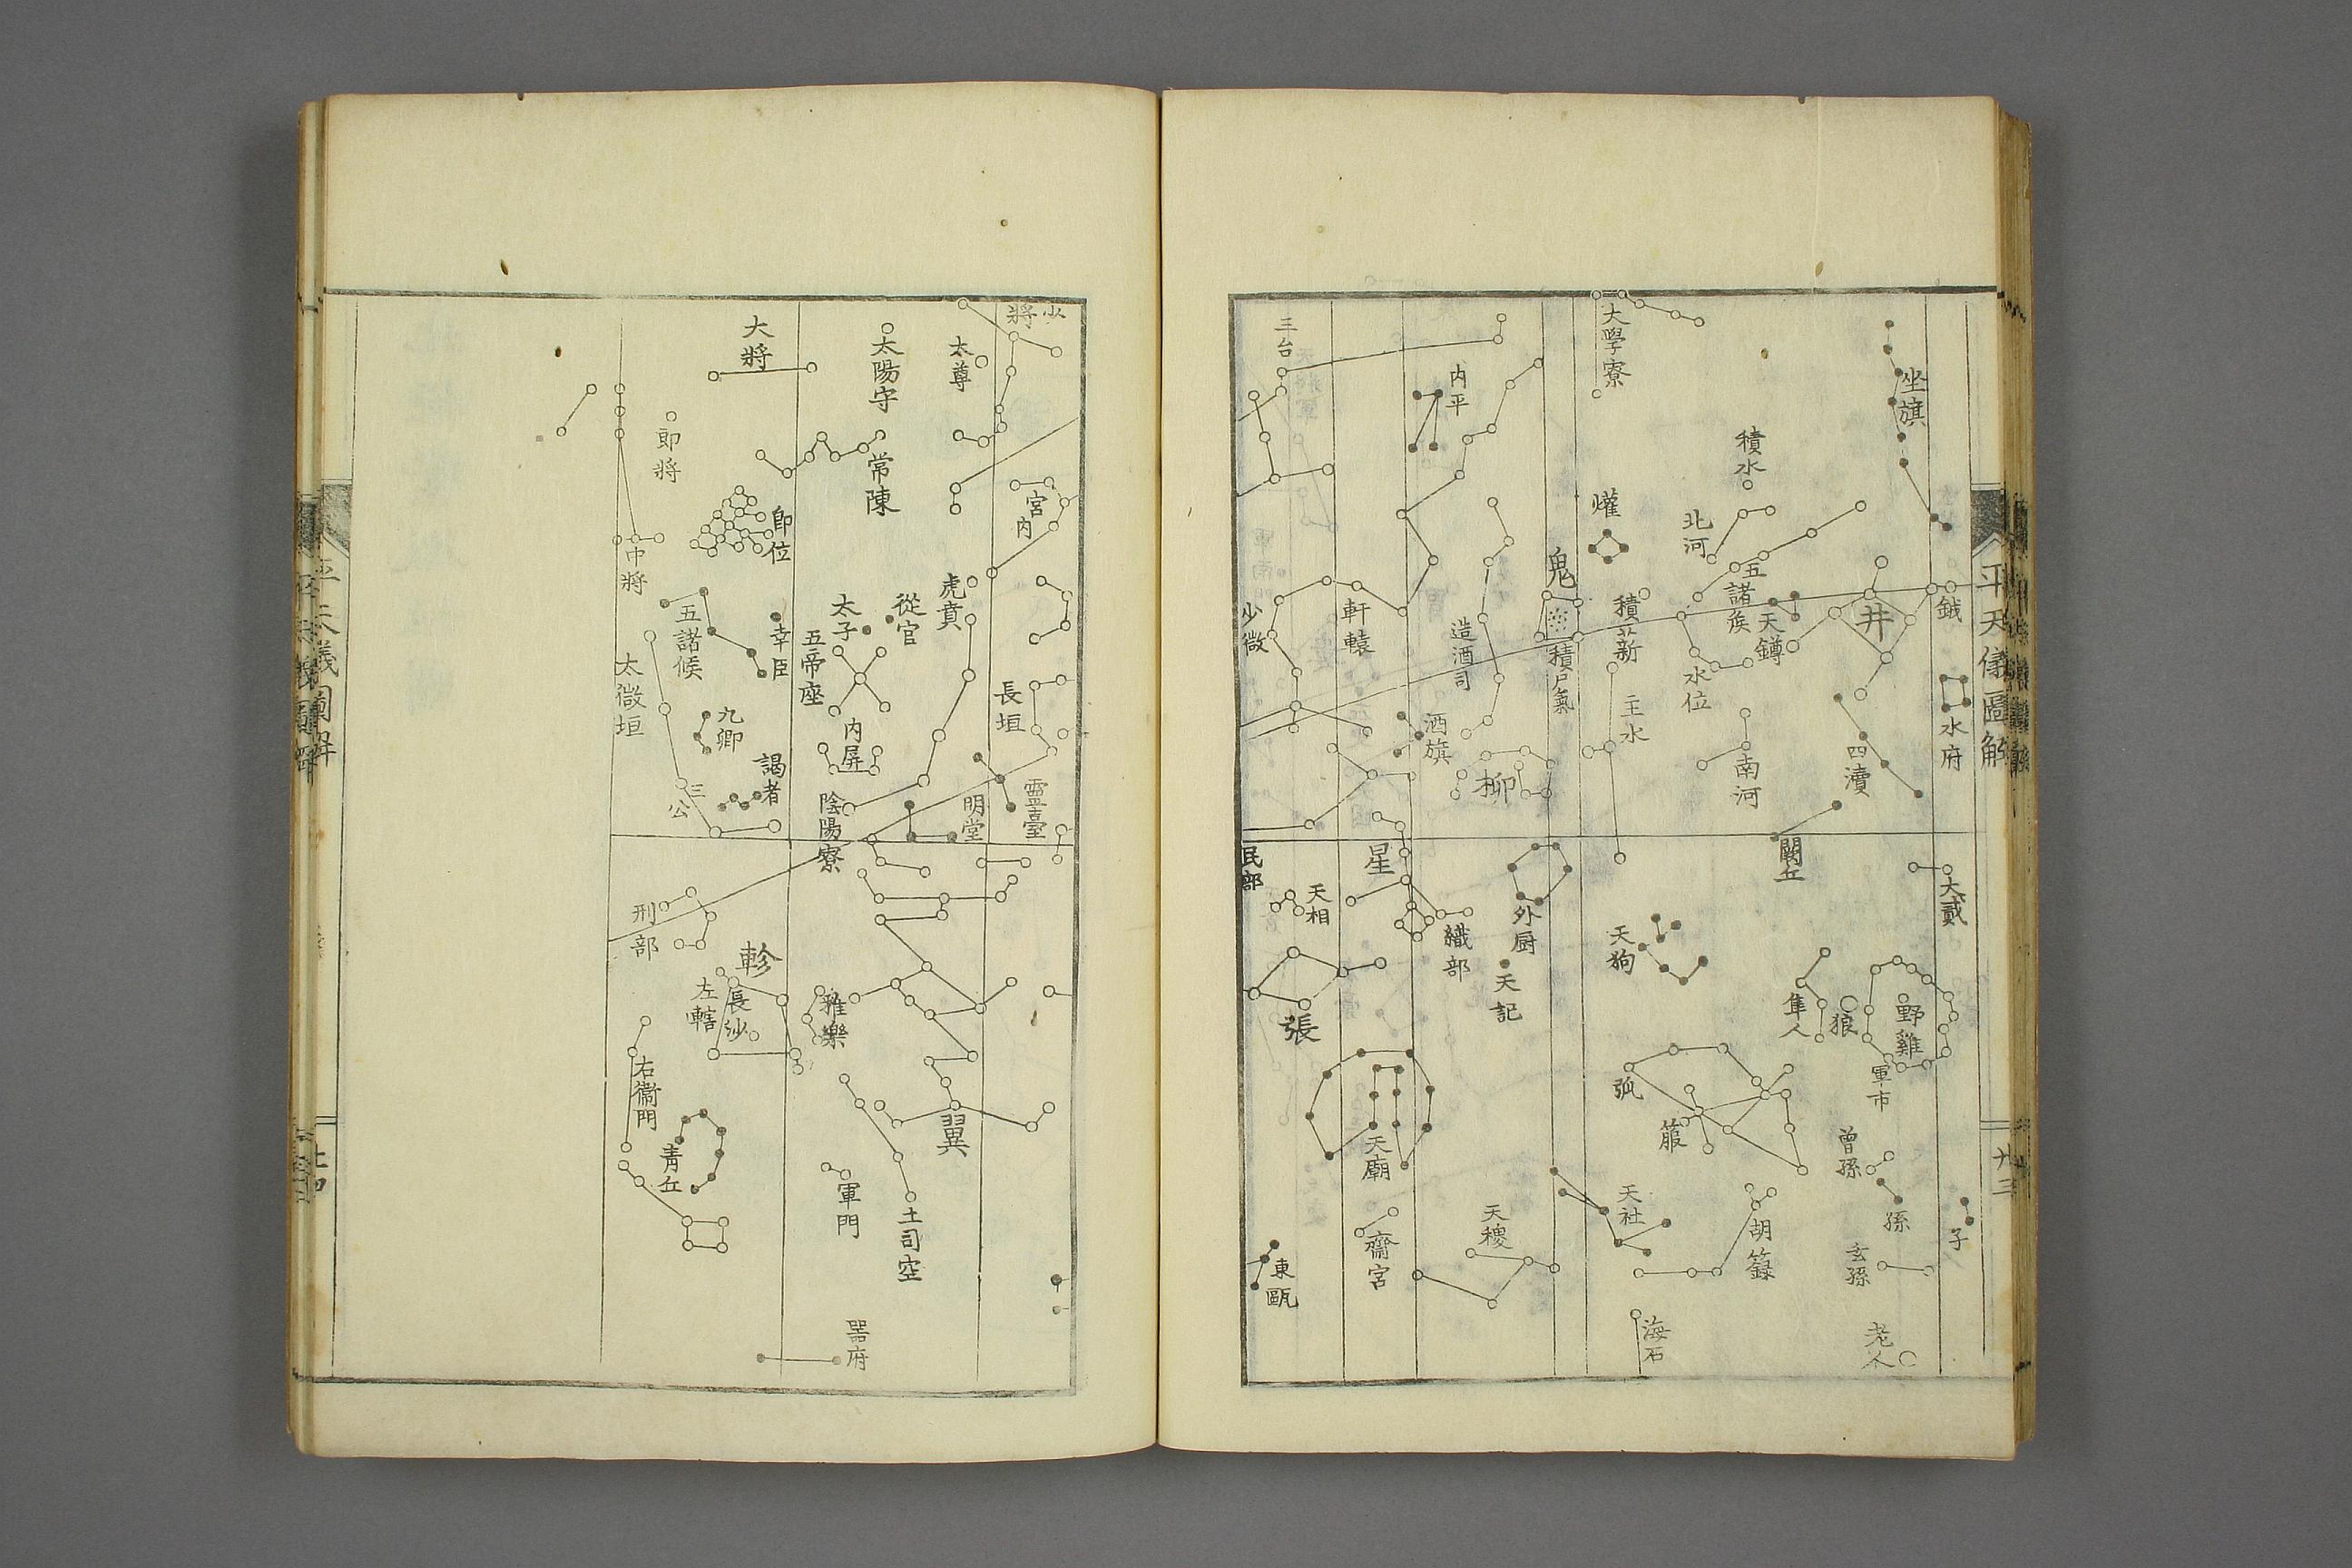 平天儀圖解
十三
坐旗
鉞
水府
大貳
子
井
四瀆
闕丘
積水
北河
五諸侯
天鐏
水位
南河
野雞
軍市
狼
隼人
曾孫
孫
玄孫
老人
大學寮
爟
積薪
主水
鬼
積尸氣
天狗
弧
箙
天社
胡籙
海石
内平
造酒司
酒旗
柳
外厨
天記
織部
天稷
三台
少微
軒轅
星
民部
天相
張
天廟
齋宮
東甌
少將
太尊
宮内
虎賁
長垣
靈臺
明堂
太陽守
常陳
從官
太子
五帝座
内屏
陰陽寮
翼
雅樂
軍門
土司空
器府
大將
郎將
郎位
中將
幸臣
五諸候
太微垣
九卿
謁者
三公
刑部
軫
左轄
長沙
右衞門
青丘
平天儀圖解
十四